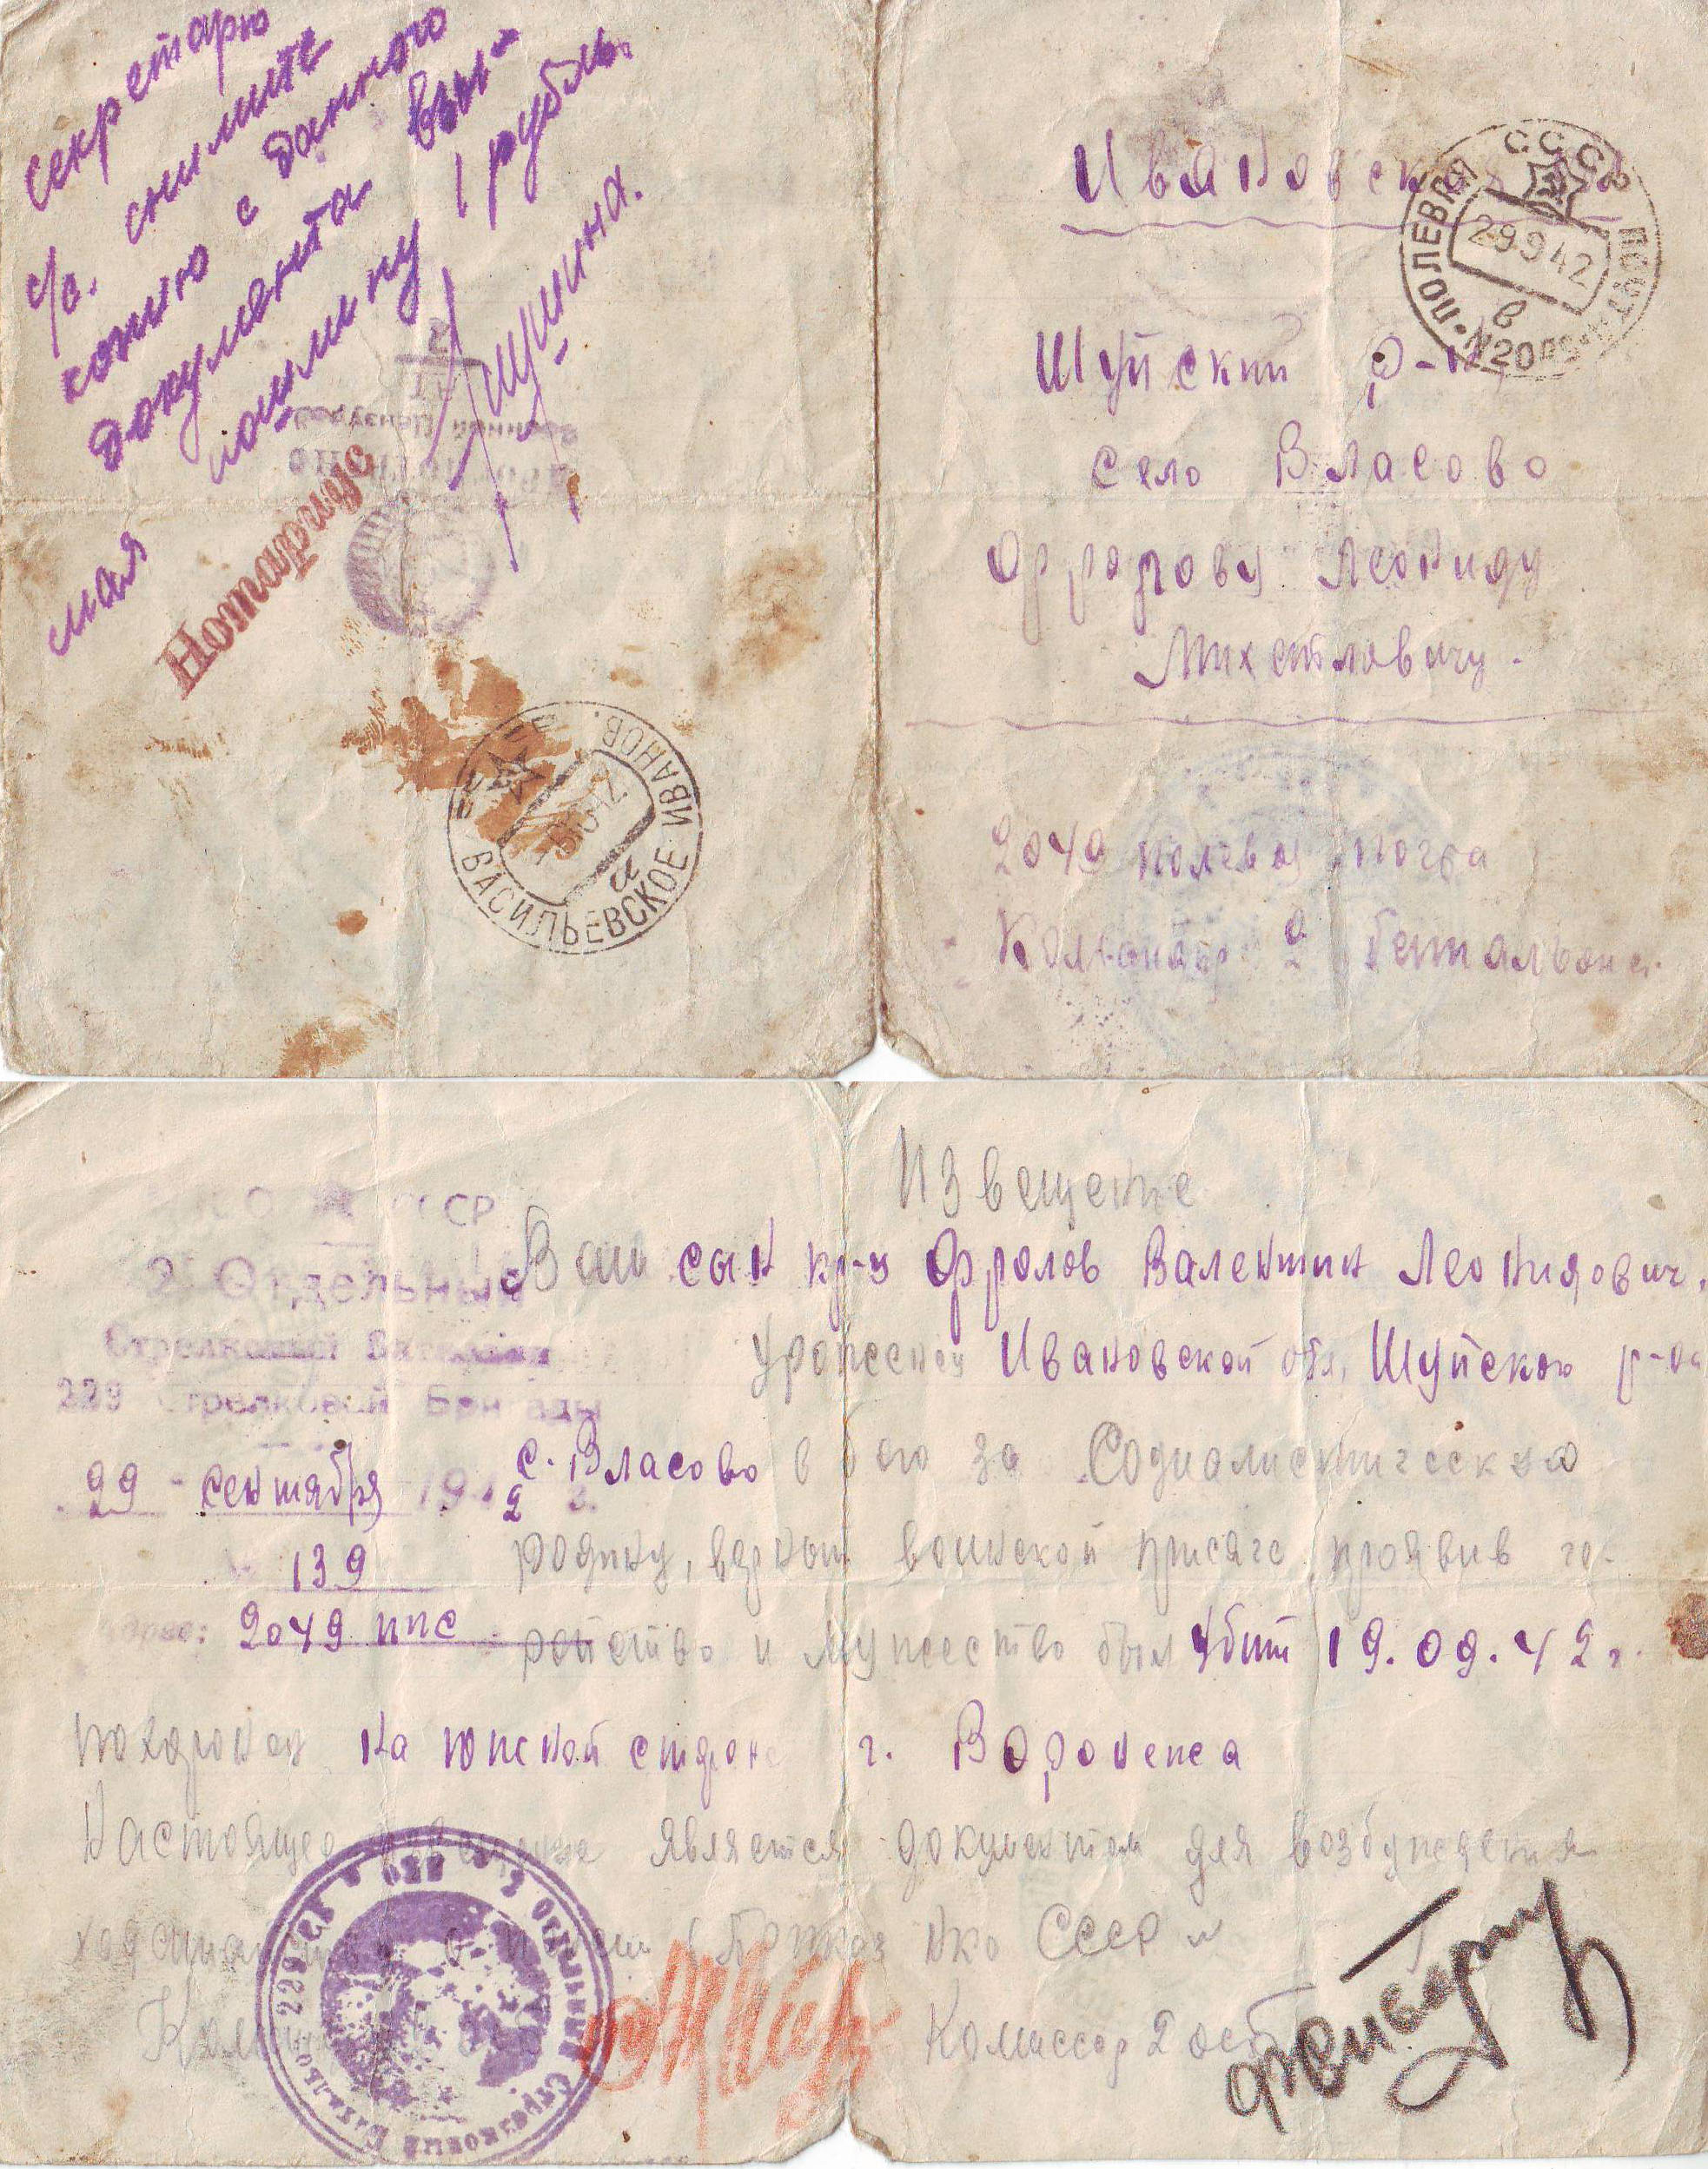 Секретарю
с/с. снимите
копию с данного
документа взы-
пошлину 1 рубль.
мая
Нотариус
ВАСИЛЬЕВСКОЕ ИВАНОВ.
а
Ивановская
СССР
ПОЛЕВАЯ ПОЧТА
29 9 42
в
Шуйский р-н
село Власово
Фролову Леониду
Михайловичу.
2049 полевая почта
Командир 2 батальона.
СССР
2 Отдельный
Стрелковый Батальон
229 Стрелковой Бригады
29 - сентября 1942 г.
139
Адрес: 2049 ппс
Извещение
Ваш сын кр-ц Фролов Валентин Леонидович.
уроженец Ивановской обл. Шуйского р-на
с. Власово в бою за Социалистическую
родину, верный воинской присяге, проявив ге-
ройство и мужество был убит 19.09.42 г.
похоронен на южской стороне г. Воронежа
Настоящее извещение является документом для возбуждения
ходатайства о пенсии (Приказ НКО СССР №
Комиссар 2 осб